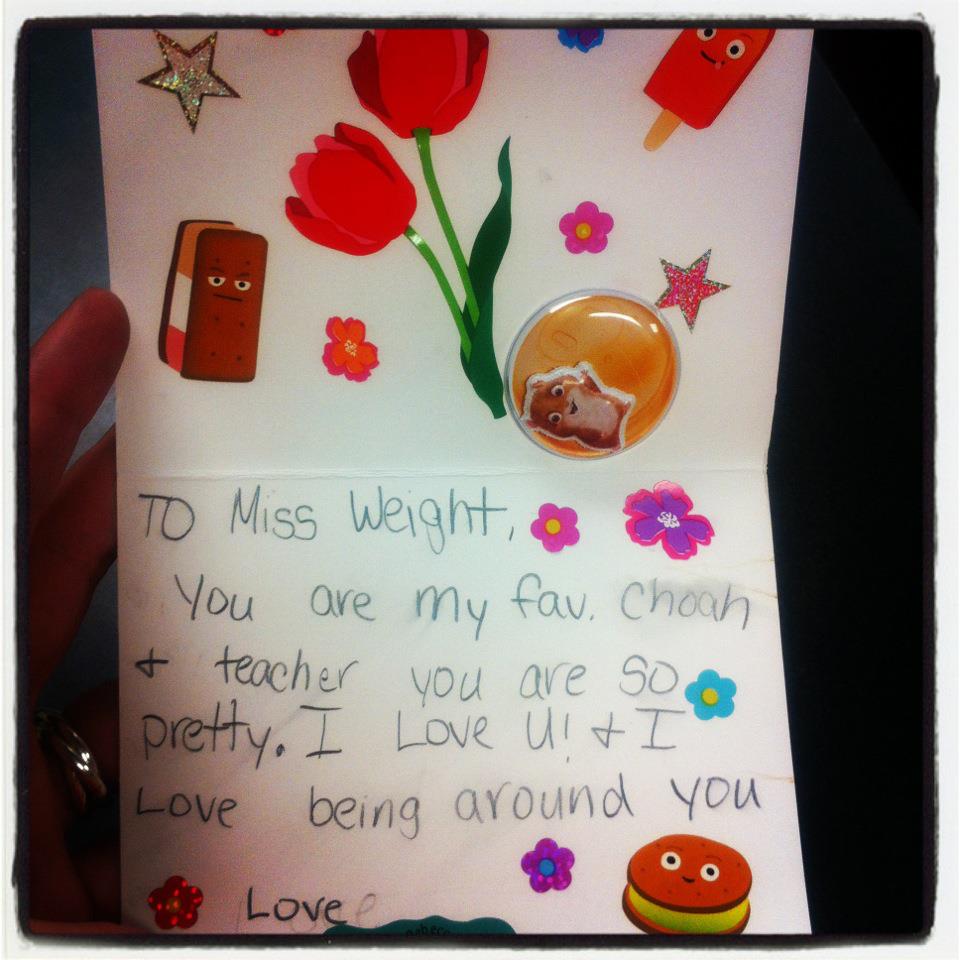 To Miss Weight,
You are my fav. choah
+ teacher you are so
pretty. I Love U! + I
Love being around you
Love